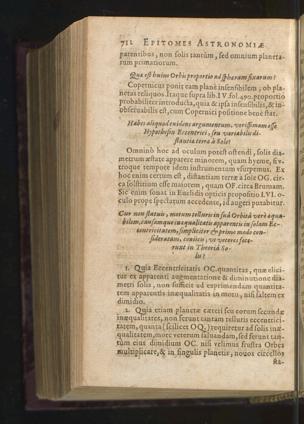 712 EPITOMES ASTRONOMIÆ
parentibus, non solis tantùm, sed omnium planeta-
rum primariorum.
Quæ est huius Orbis proportio ad sphæram fixarum?
Copernicus ponit eam planè insensibilem, ob pla-
netas reliquos. Itaque supra lib. IV. fol. 490. proportio
probabiliter introducta, quia & ipsa insensibilis, & in-
obseruabilis est, cum Copernici positione benè stat.
Habes aliquod euidens argumentum, verissimam esse
Hypothesin Eccentrici, seu variabilis di-
stantiæ terræ à Sole?
Omninò hoc ad oculum potest ostendi, solis dia-
metrum æstate apparere minorem, quam hyeme, si v-
troque tempore idem instrumentum vsurpemus. Ex
hoc enim certum est, distantiam terræ à sole OG. cir-
ca solstitium esse maiorem, quam OF. circa Brumam.
Sic enim sonat in Euclidis opticis propositio LVI. o-
culo prope spectatum accedente, id augeri putabitur.
Cur non statuis, motum telluris in suâ Orbitâ verè æqua-
bilem, causamque inæqualitatis apparentis in solam Ec-
centricitatem, simpliciter & primo modo con-
sideratam, coniicis, vt veteres fece-
runt in Theoriâ So-
lis?
1. Quia Eccentricitatis OC. quantitas, quæ elici-
tur ex apparenti augmentatione & diminutione dia-
metri solis, non sufficit ad exprimendam quantita-
tem apparentis inæqualitatis in motu, nisi saltem ex
dimidio.
2. Quia etiam planetæ cæteri seu eorum secundæ
inæqualitates, non ferunt tantam telluris eccentrici-
tatem, quanta (scilicet OQ.) requiretur ad solis inæ-
qualitatem, more veterum saluandam, sed ferunt tan-
tùm eius dimidium OC. nisi velimus frustra Orbes
multiplicare, & in singulis planetis, nouos circellos